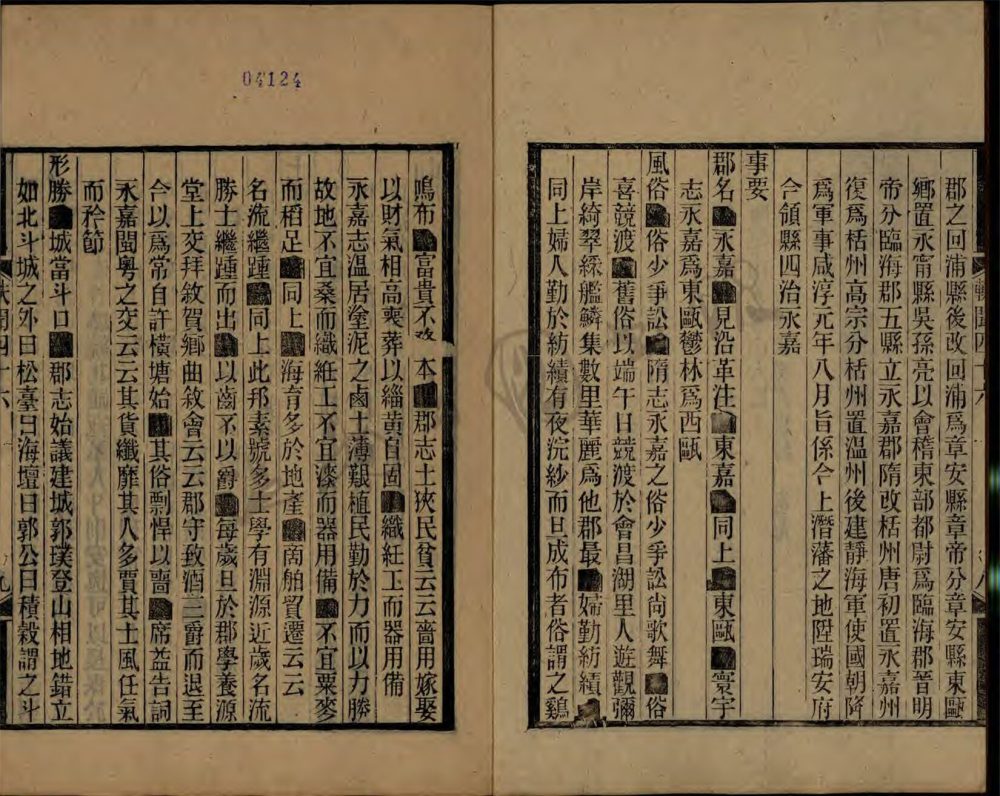 郡之回浦縣後改回浦爲章安縣章帝分章安縣東甌
鄉置永甯縣吳孫亮以會稽東部都尉爲臨海郡晉明
帝分臨海郡五縣立永嘉郡隋改栝州唐初置永嘉州
復爲栝州高宗分栝州置溫州後建靜海軍使國朝降
爲軍事咸淳元年八月旨係今上潛藩之地陞瑞安府
今領縣四治永嘉
事要
郡名永嘉見沿革注東嘉同上東甌寰宇
志永嘉爲東甌鬱林爲西甌
風俗俗少爭訟隋志永嘉之俗少爭訟尚歌舞俗
喜競渡舊俗以端午日競渡於會昌湖里人遊觀彌
岸綺翠綵艦鱗集數里華麗爲他郡最婦勤紡績
同上婦人勤於紡績有夜浣紗而旦成布者俗謂之鷄
鳴布富貴不改本郡志土狹民貧云云嗇用嫁娶
以財氣相高喪葬以緇黃自固織紝工而器用備
永嘉志溫居塗泥之鹵土薄艱植民勤於力而以力勝
故地不宜桑而織紝工不宜漆而器用備不宜粟麥
而稻足同上海育多於地產商舶貿遷云云
名流繼踵同上此邦素號多士學有淵源近歲名流
勝士繼踵而出以齒不以爵每歲旦於郡學養源
堂上交拜敘賀鄉曲敘會云云郡守致酒三爵而退至
今以爲常自許橫塘始其俗剽悍以嗇席益告詞
永嘉閩粵之交云云其貨纖靡其人多賈其士風任氣
而矜節
形勝城當斗口郡志始議建城郭璞登山相地錯立
如北斗城之外曰松臺曰海壇曰郭公曰積穀謂之斗
04124